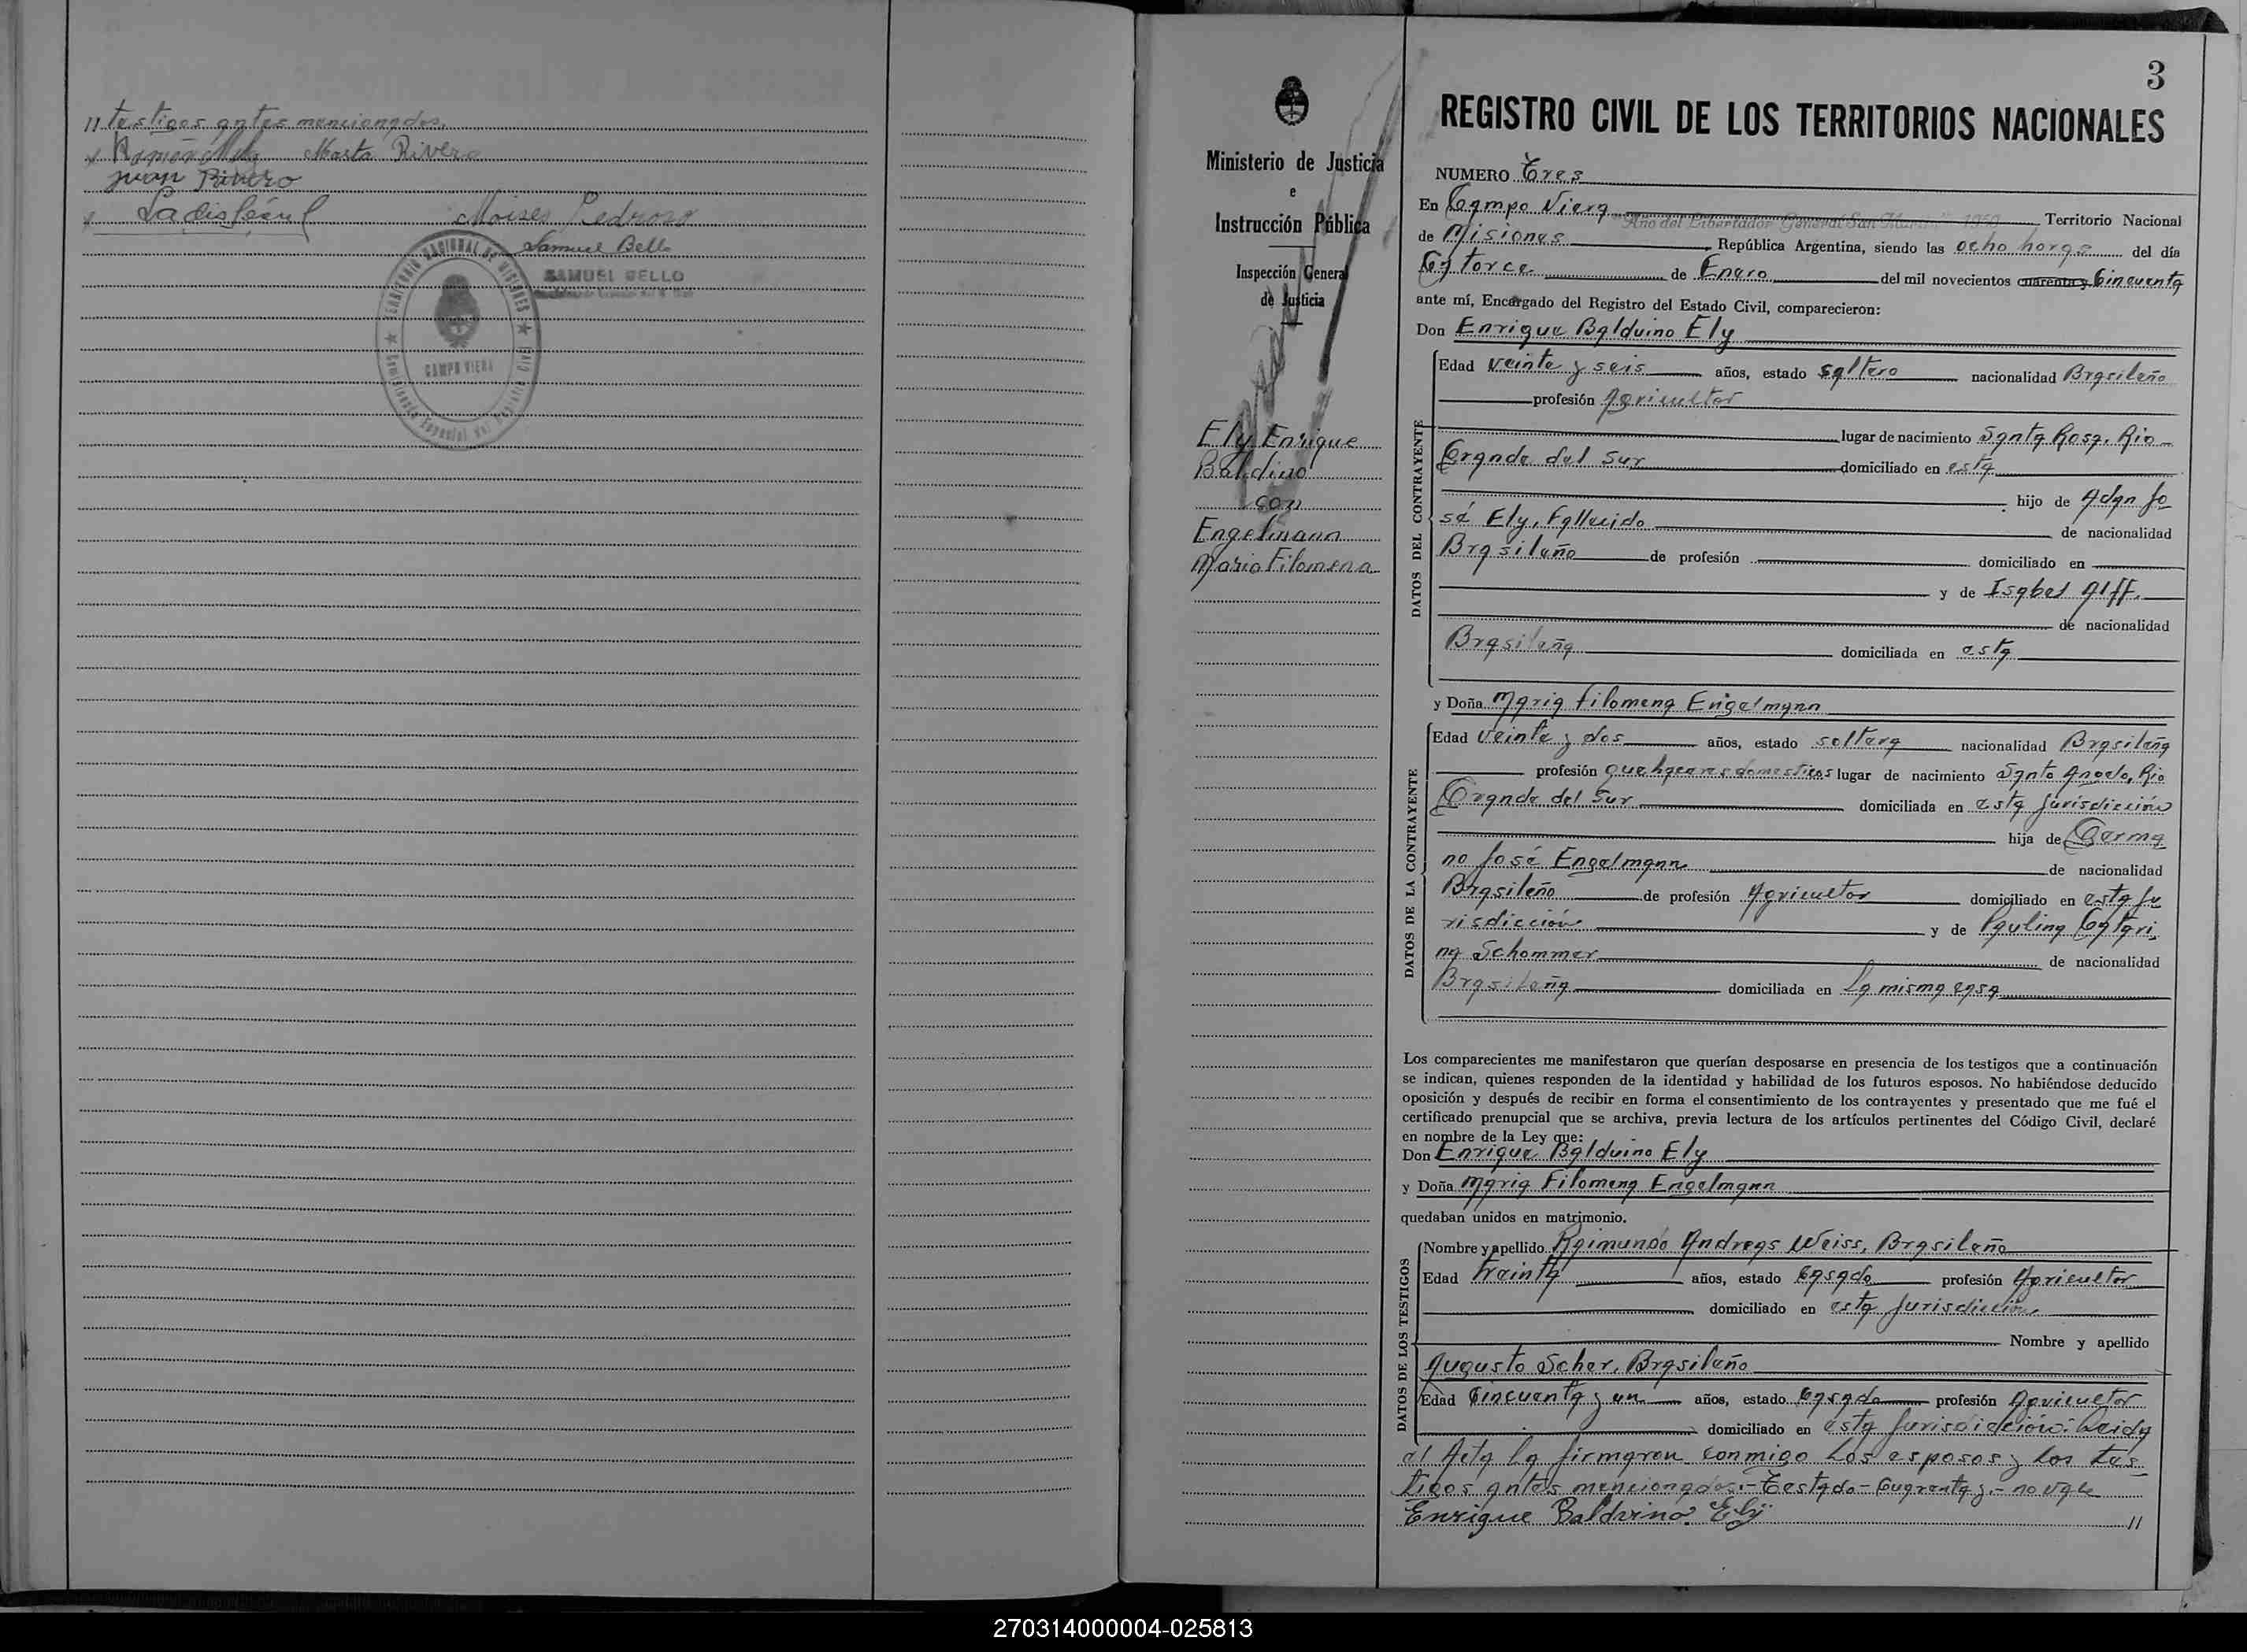 // testigos antes mencionados.
Marta Rivero
Juan Rivero
Moises Pedrozo
Samuel Bello
SAMUEL BELLO
TERRITORIO NACIONAL DE MISIONES
CAMPO VIERA
3
REGISTRO CIVIL DE LOS TERRITORIOS NACIONALES
Ministerio de Justicia
e
Instrucción Pública
Inspección General
de Justicia
Ely Enrique
Baldino
con
Engelmann
Maria Filomena
NUMERO Tres
En Campo Viera "Año del Libertador General San Martín" 1950 Territorio Nacional
de Misiones República Argentina, siendo las ocho horas del día
Catorce de Enero del mil novecientos cuarenta y Cincuenta
ante mí, Encargado del Registro del Estado Civil, comparecieron:
Don Enrique Balduino Ely
DATOS DEL CONTRAYENTE
Edad veinte y seis años, estado soltero nacionalidad Brasileño
profesión Agricultor
lugar de nacimiento Santa Rosa, Rio
Grande del Sur domiciliado en esta
hijo de Adan Jo
sé Ely, Fallecido de nacionalidad
Brasileño de profesión domiciliado en
y de Isabel Alff.
de nacionalidad
Brasileña domiciliada en esta
y Doña Maria Filomena Engelmann
DATOS DE LA CONTRAYENTE
Edad veinte y dos años, estado soltera nacionalidad Brasileña
profesión quehaceres domesticos lugar de nacimiento Santo Angelo, Rio
Grande del Sur domiciliada en esta jurisdicción
hija de Germa
no José Engelmann de nacionalidad
Brasileño de profesión Agricultor domiciliado en esta ju
risdicción y de Paulina Catari
na Schommer de nacionalidad
Brasileña domiciliada en La misma casa
Los comparecientes me manifestaron que querían desposarse en presencia de los testigos que a continuación
se indican, quienes responden de la identidad y habilidad de los futuros esposos. No habiéndose deducido
oposición y después de recibir en forma el consentimiento de los contrayentes y presentado que me fué el
certificado prenupcial que se archiva, previa lectura de los artículos pertinentes del Código Civil, declaré
en nombre de la Ley que:
Don Enrique Balduino Ely
y Doña Maria Filomena Engelmann
quedaban unidos en matrimonio.
DATOS DE LOS TESTIGOS
Nombre y apellido Raimundo Andreas Weiss, Brasileño
Edad treinta años, estado Casado profesión Agricultor
domiciliado en esta Jurisdicción
Nombre y apellido
Augusto Scher, Brasileño
Edad Cincuenta y un años, estado Casado profesión Agricultor
domiciliado en esta Jurisdidición: Leida
el Acta La firmaron conmigo Los esposos y los tes
tigos antes mencionados.- Testado- Cuarenta y.- no vale
Enrique Baldvino Ely //
270314000004-025813